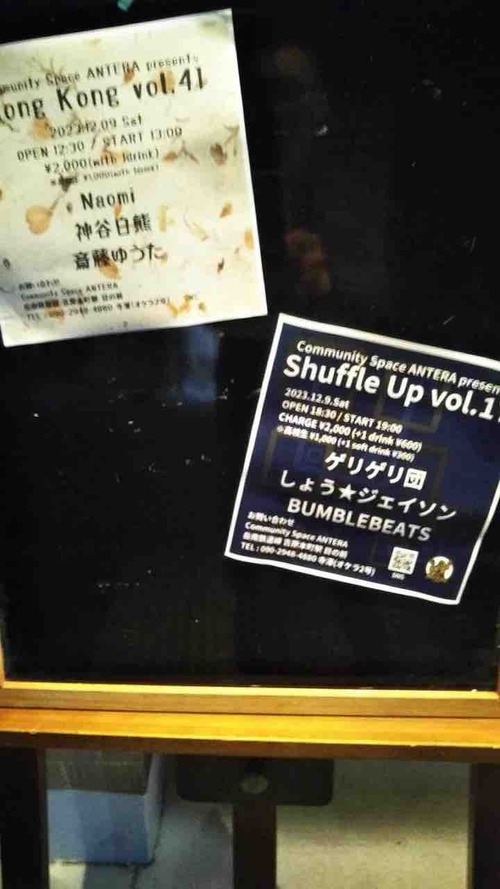 mmunity Space ANTERA presents
ong Kong vol.41
2023.12.09 Sat
OPEN 12:30 / START 13:00
¥2,000(with 1drink)
Naomi
神谷日熊
斎藤ゆうた
お問い合わせ
Community Space ANTERA
岳南鉄道線 吉原本町駅 目の前
TEL : 090-2948-4880 寺澤(オケラ2号)
Community Space ANTERA presen
Shuffle Up vol.1
2023.12.9.Sat
OPEN 18:30 / START 19:00
CHARGE ¥2,000 (+1 drink ¥600)
※高校生 ¥1,000 (+1 soft drink ¥300)
ゲリゲリ団
しょう★ジェイソン
BUMBLEBEATS
お問い合わせ
Community Space ANTERA
岳南鉄道線 吉原本町駅 目の前
TEL : 090-2948-4880 寺澤(オケラ2号)
SNS